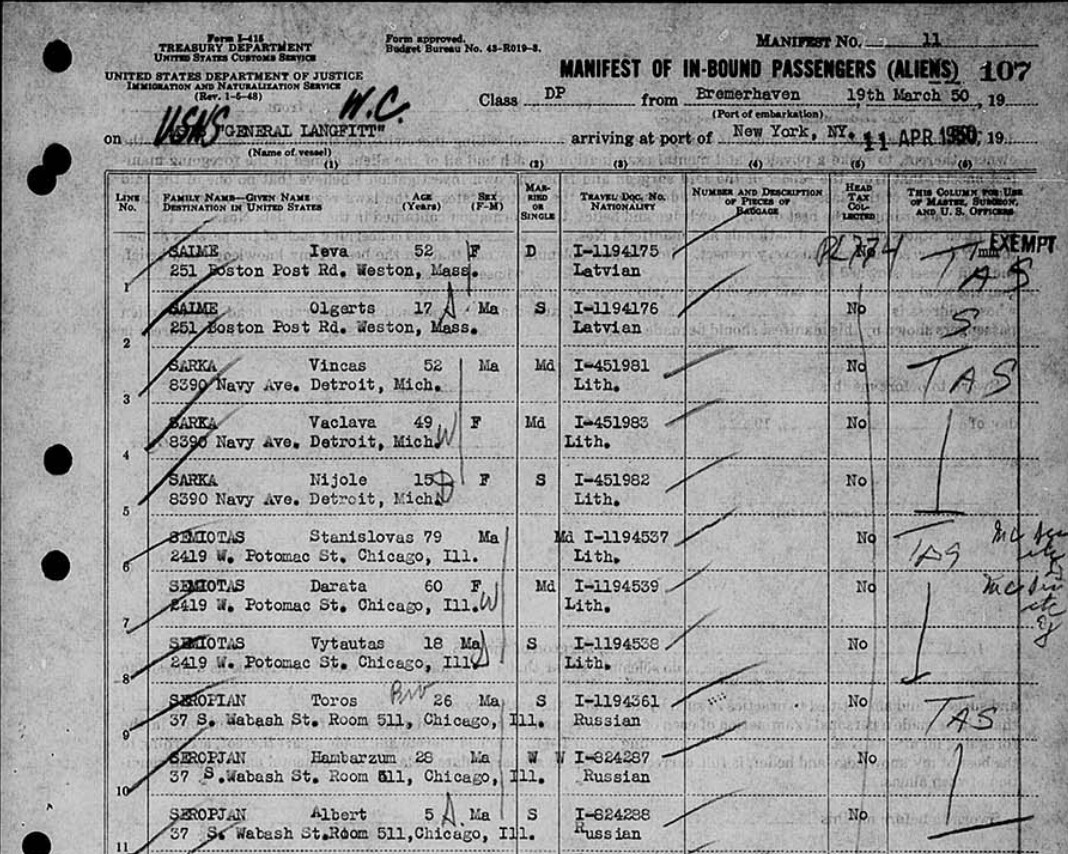 Form I-415
TREASURY DEPARTMENT
UNITED STATES CUSTOMS SERVICE
Form approved.
Budget Bureau No. 43-R019-3.
MANIFEST NO. 11
UNITED STATES DEPARTMENT OF JUSTICE
IMMIGRATION AND NATURALIZATION SERVICE
(Rev. 1-5-48)
MANIFEST OF IN-BOUND PASSENGERS (ALIENS) 107
W.C.
Class DP from Bremerhaven 19th March 50, 19
(Port of embarkation)
on USNS "GENERAL LANGFITT" arriving at port of New York, NY. 11 APR 1950, 19
(Name of vessel)
(1) (2) (3) (4) (5) (6)
LINE No. FAMILY NAME—GIVEN NAME DESTINATION IN UNITED STATES AGE (Years) SEX (F-M) MARRIED OR SINGLE TRAVEL DOC. NO. NATIONALITY NUMBER AND DESCRIPTION OF PIECES OF BAGGAGE HEAD TAX COLLECTED THIS COLUMN FOR USE OF MASTER, SURGEON, AND U. S. OFFICERS
SAIME Ieva 52 F D I-1194175 No EXEMPT
251 Boston Post Rd. Weston, Mass. Latvian TAS
1
SAIME Olgerts 17 A Ma S I-1194176 No S
251 Boston Post Rd. Weston, Mass. Latvian
2
SARKA Vincas 52 Ma Md I-451981 No TAS
8390 Navy Ave. Detroit, Mich. Lith.
3
SARKA Vaclava 49 F Md I-451983 No
8390 Navy Ave. Detroit, Mich. W Lith.
4
SARKA Nijole 15 F S I-451982 No
8390 Navy Ave. Detroit, Mich. Lith.
5
SEMIOTAS Stanislovas 79 Ma Md I-1194537 No TAS
2419 W. Potomac St. Chicago, Ill. Lith.
6
SEMIOTAS Darata 60 F Md I-1194539 No
2419 W. Potomac St. Chicago, Ill. W Lith.
7
SEMIOTAS Vytautas 18 Ma S I-1194538 No
2419 W. Potomac St. Chicago, Ill. Lith.
8
SEROPIAN Toros 26 Ma S I-1194361 No TAS
37 S. Wabash St. Room 511, Chicago, Ill. Russian
9
SEROPJAN Hambarzum 28 Ma W W I-824287 No
37 S. Wabash St. Room 511, Chicago, Ill. Russian
10
SEROPJAN Albert 5 A. Ma S I-824288 No
37 S. Wabash St.Room 511,Chicago, Ill. Russian
11